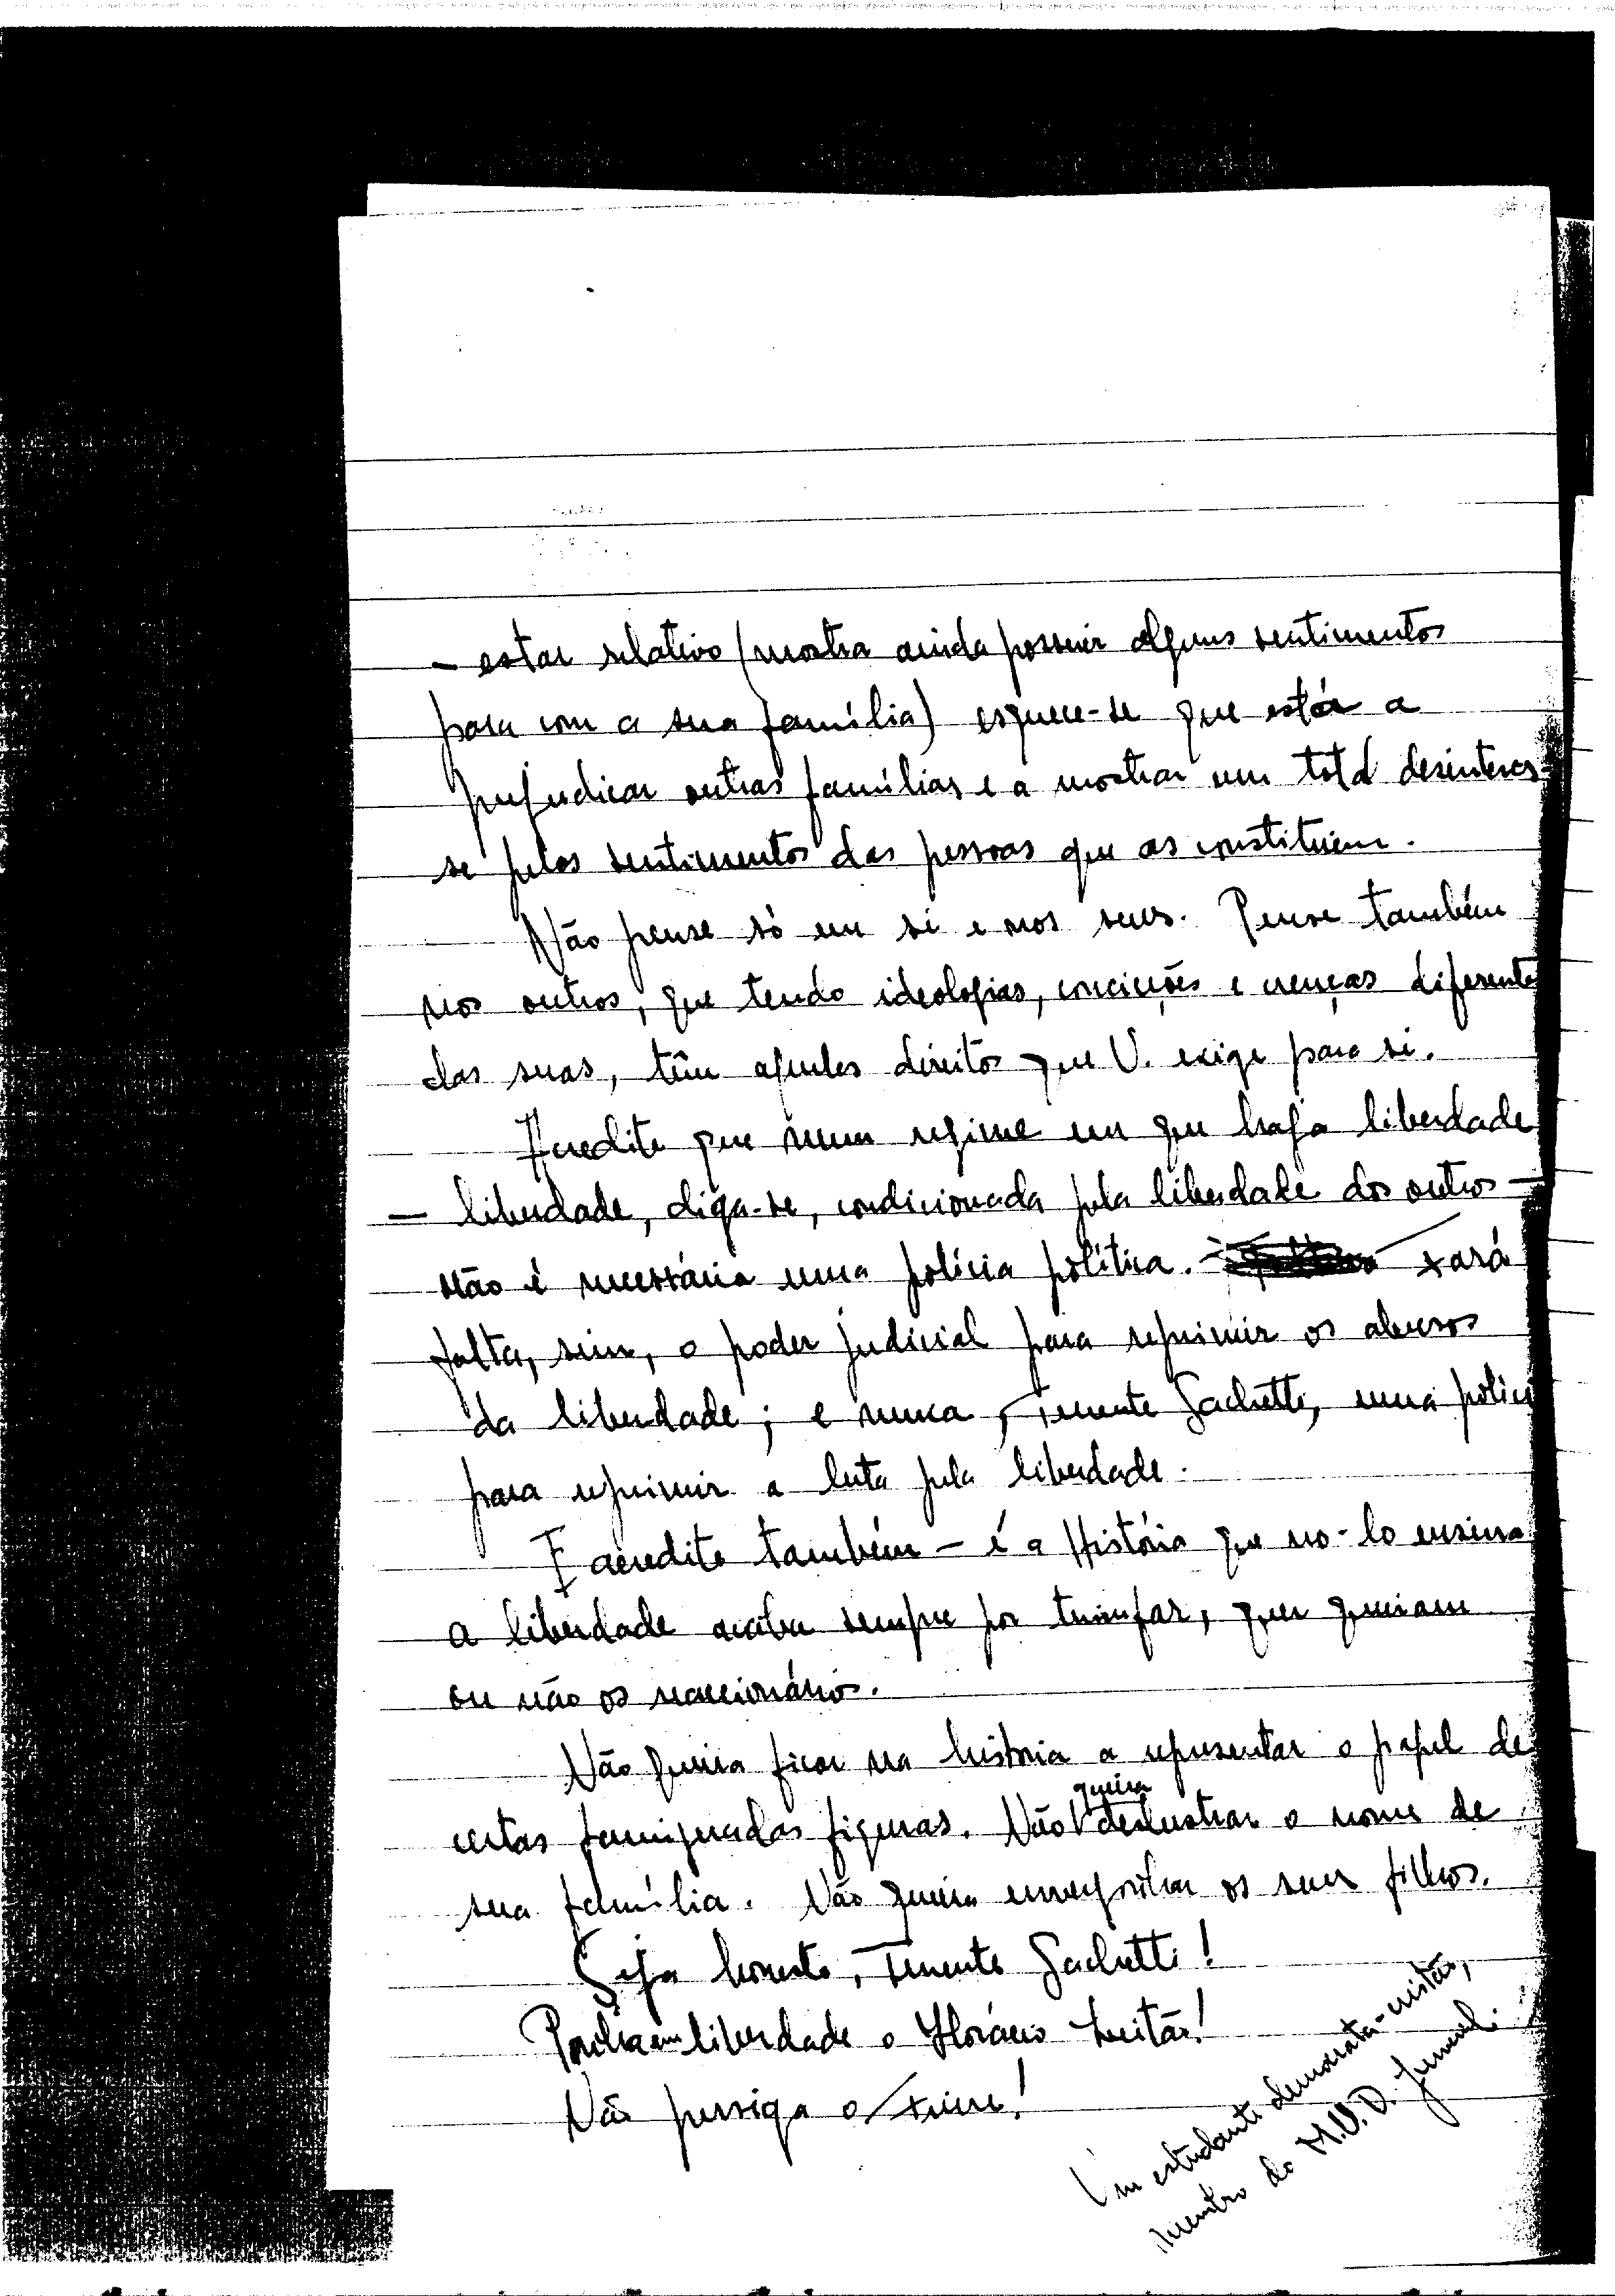 - estar relativo (mostra ainda possuir alguns sentimentos
para com a sua família) esquece-se que está a
prejudicar outras famílias e a mostrar um total desinteres-
se pelos sentimentos das pessoas que as constituem.
Não pense só em si e nos seus. Pense também
nos outros, que tendo ideologias, convicções e crenças diferentes
das suas, têm aqueles direitos que V. exige para si.
Acredite que num regime em que haja liberdade
- liberdade, diga-se, condicionada pela liberdade dos outros -
não é necessária uma polícia política. Fará
falta, sim, o poder judicial para reprimir os abusos
da liberdade; e nunca, Tenente Sachetti, uma polícia
para reprimir a luta pela liberdade.
E acredite também - é a História que no-lo ensina
a liberdade acaba sempre por triunfar, quer queiram
ou não os reaccionários.
Não queira ficar na história a representar o papel de
certas famigeradas figuras. Não queira deslustrar o nome de
sua família. Não queira envergonhar os seus filhos.
Seja honesto, Tenente Sachetti!
Ponha em liberdade o Horácio Leitão!
Não persiga o
Um estudante democrata-cristão,
membro do M.U.D. Juvenil.